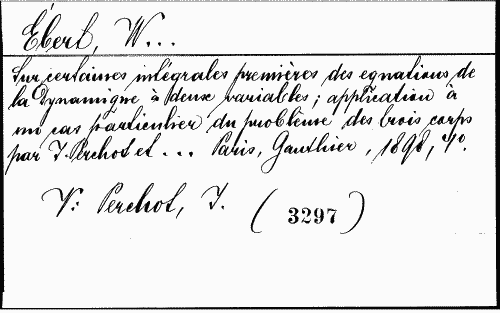 Ébert, W...
Sur certaines intégrales premières des equations de
la Dynamique à deux variables; application à
un cas particulier du problème des trois corps
par J. Perchot et ... Paris, Gauthier, 1898, 4º.
V: Perchot, J. (3297)